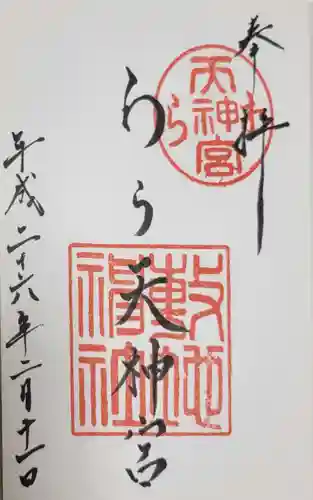 奉拝
わら天神宮
わら天神宮
敷地神社
平成二十六年二月十一日